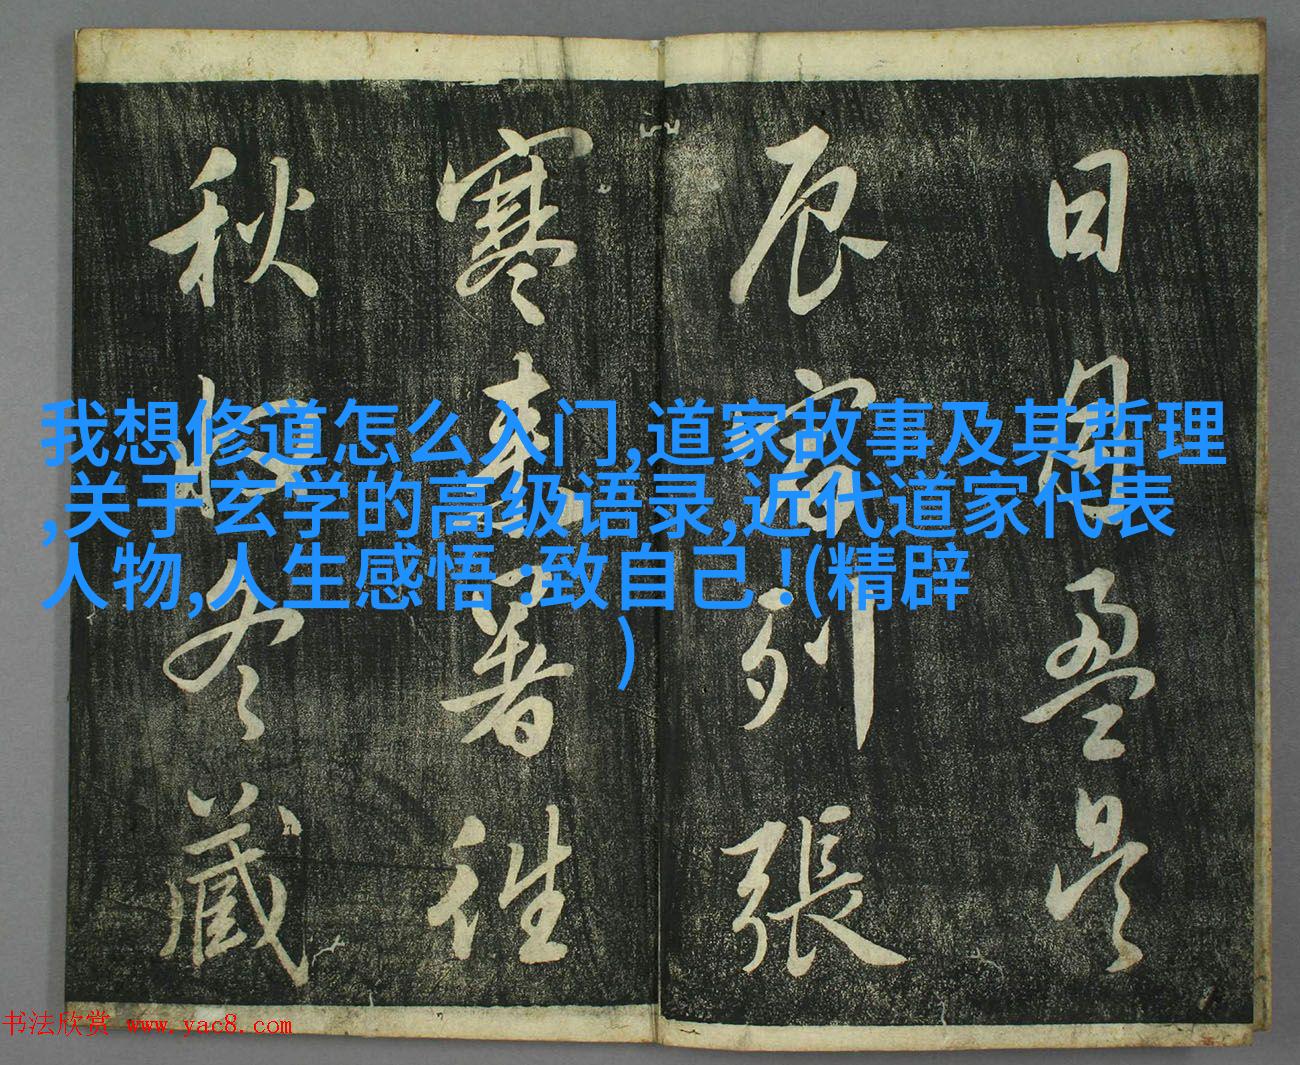 日月盈昃
辰宿列張
寒來暑往
秋收冬藏
我想修道怎么入门,道家故事及其哲理
,关于玄学的高级语录,近代道家代表
人物,人生感悟 :致自己 !(精辟
)
书法欣赏 www.yac8.com